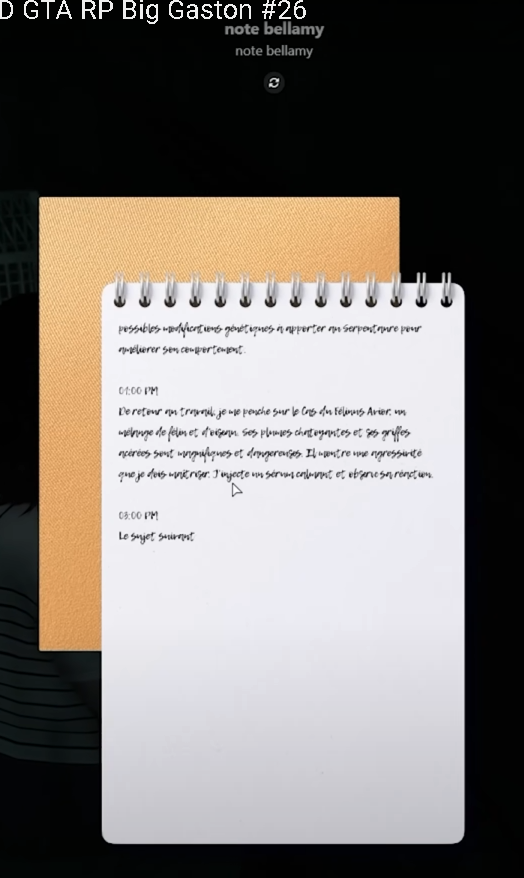 D GTA RP Big Gaston #26
note bellamy
note bellamy
possibles modifications génétiques à apporter au Serpentaure pour
améliorer son comportement.
01:00 PM
De retour au travail, je me penche sur le Cas du Félinus Avior, un
mélange de félin et d'oiseau. Ses plumes chatoyantes et ses griffes
acérées sont magnifiques et dangereuses. Il montre une agressivité
que je dois maîtriser. J'injecte un sérum calmant et observe sa réaction.
03:00 PM
Le sujet suivant